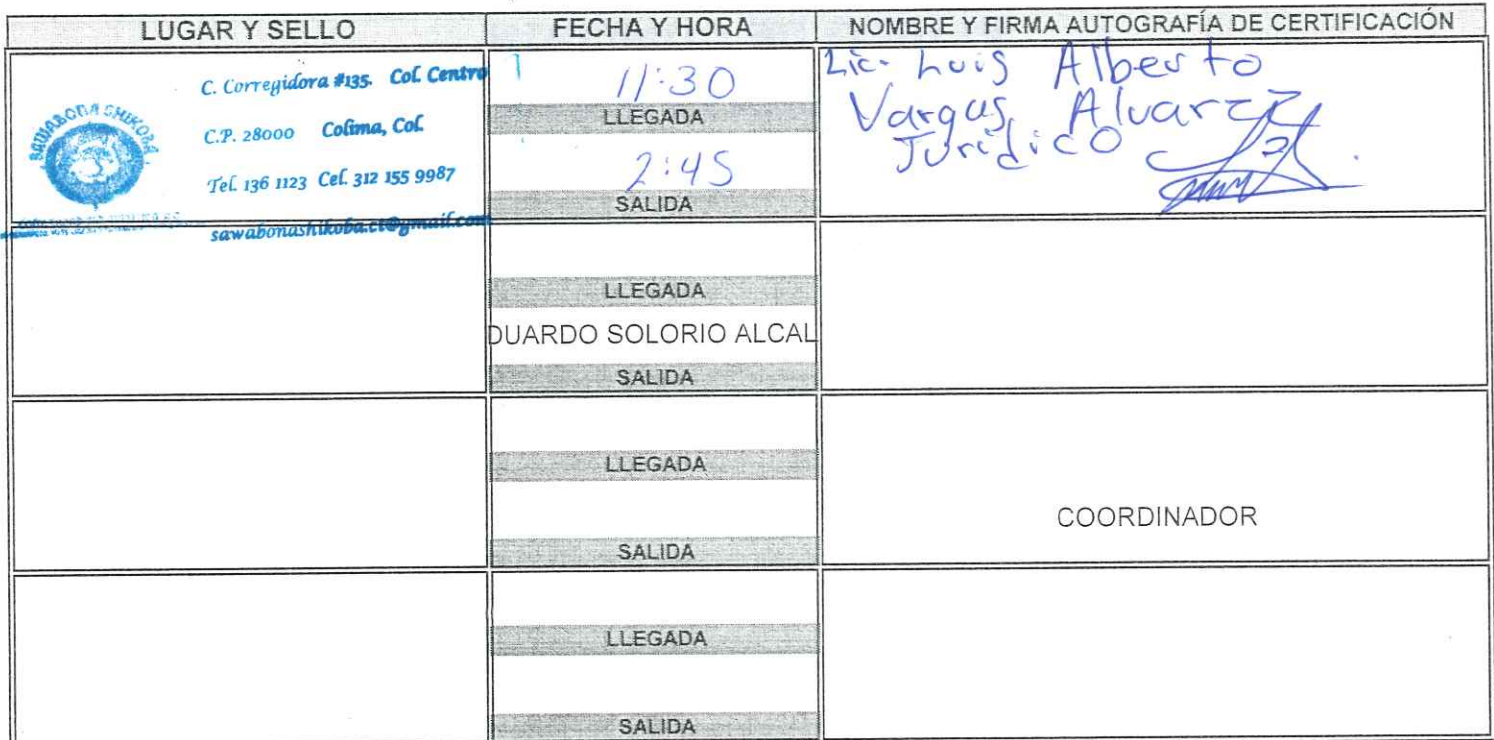 LUGAR Y SELLO
FECHA Y HORA
NOMBRE Y FIRMA AUTOGRAFÍA DE CERTIFICACIÓN
SAWABONA SHIKOBA
C. Corregidora #135. Col. Centro
C.P. 28000 Colima, Col.
Tel. 136 1123 Cel. 312 155 9987
sawabonashikoba.ct@gmail.com
11:30
LLEGADA
2:45
SALIDA
Lic. Luis Alberto
Vargas Alvarez
Jurídico
LLEGADA
DUARDO SOLORIO ALCAL
SALIDA
LLEGADA
SALIDA
COORDINADOR
LLEGADA
SALIDA